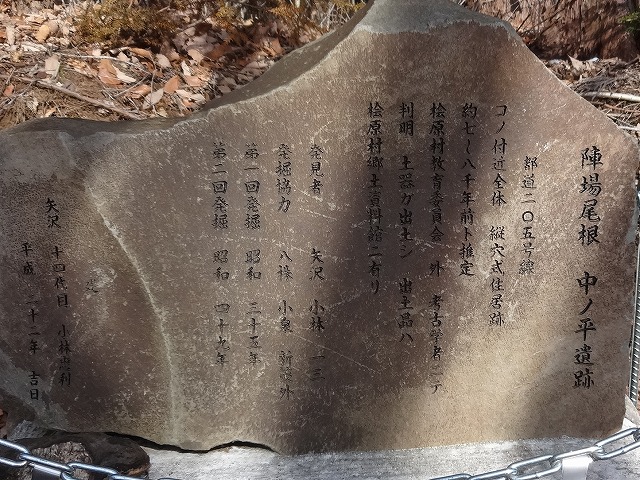 陣場尾根 中ノ平遺跡
都道二〇五号線
コノ付近全体 縦穴式住居跡
約七〜八千年前ト推定
桧原村教育委員会 外 考古学者ニテ
判明 土器ガ出土シ 出土品ハ
桧原村郷土資料館ニ有リ
発見者 矢沢 小林 一三
発掘協力 八祿 小泉 外
第一回発掘 昭和 三十五年
第二回発掘 昭和 四十七年
矢沢 十四代目 小林 利
平成 二十二年 吉日